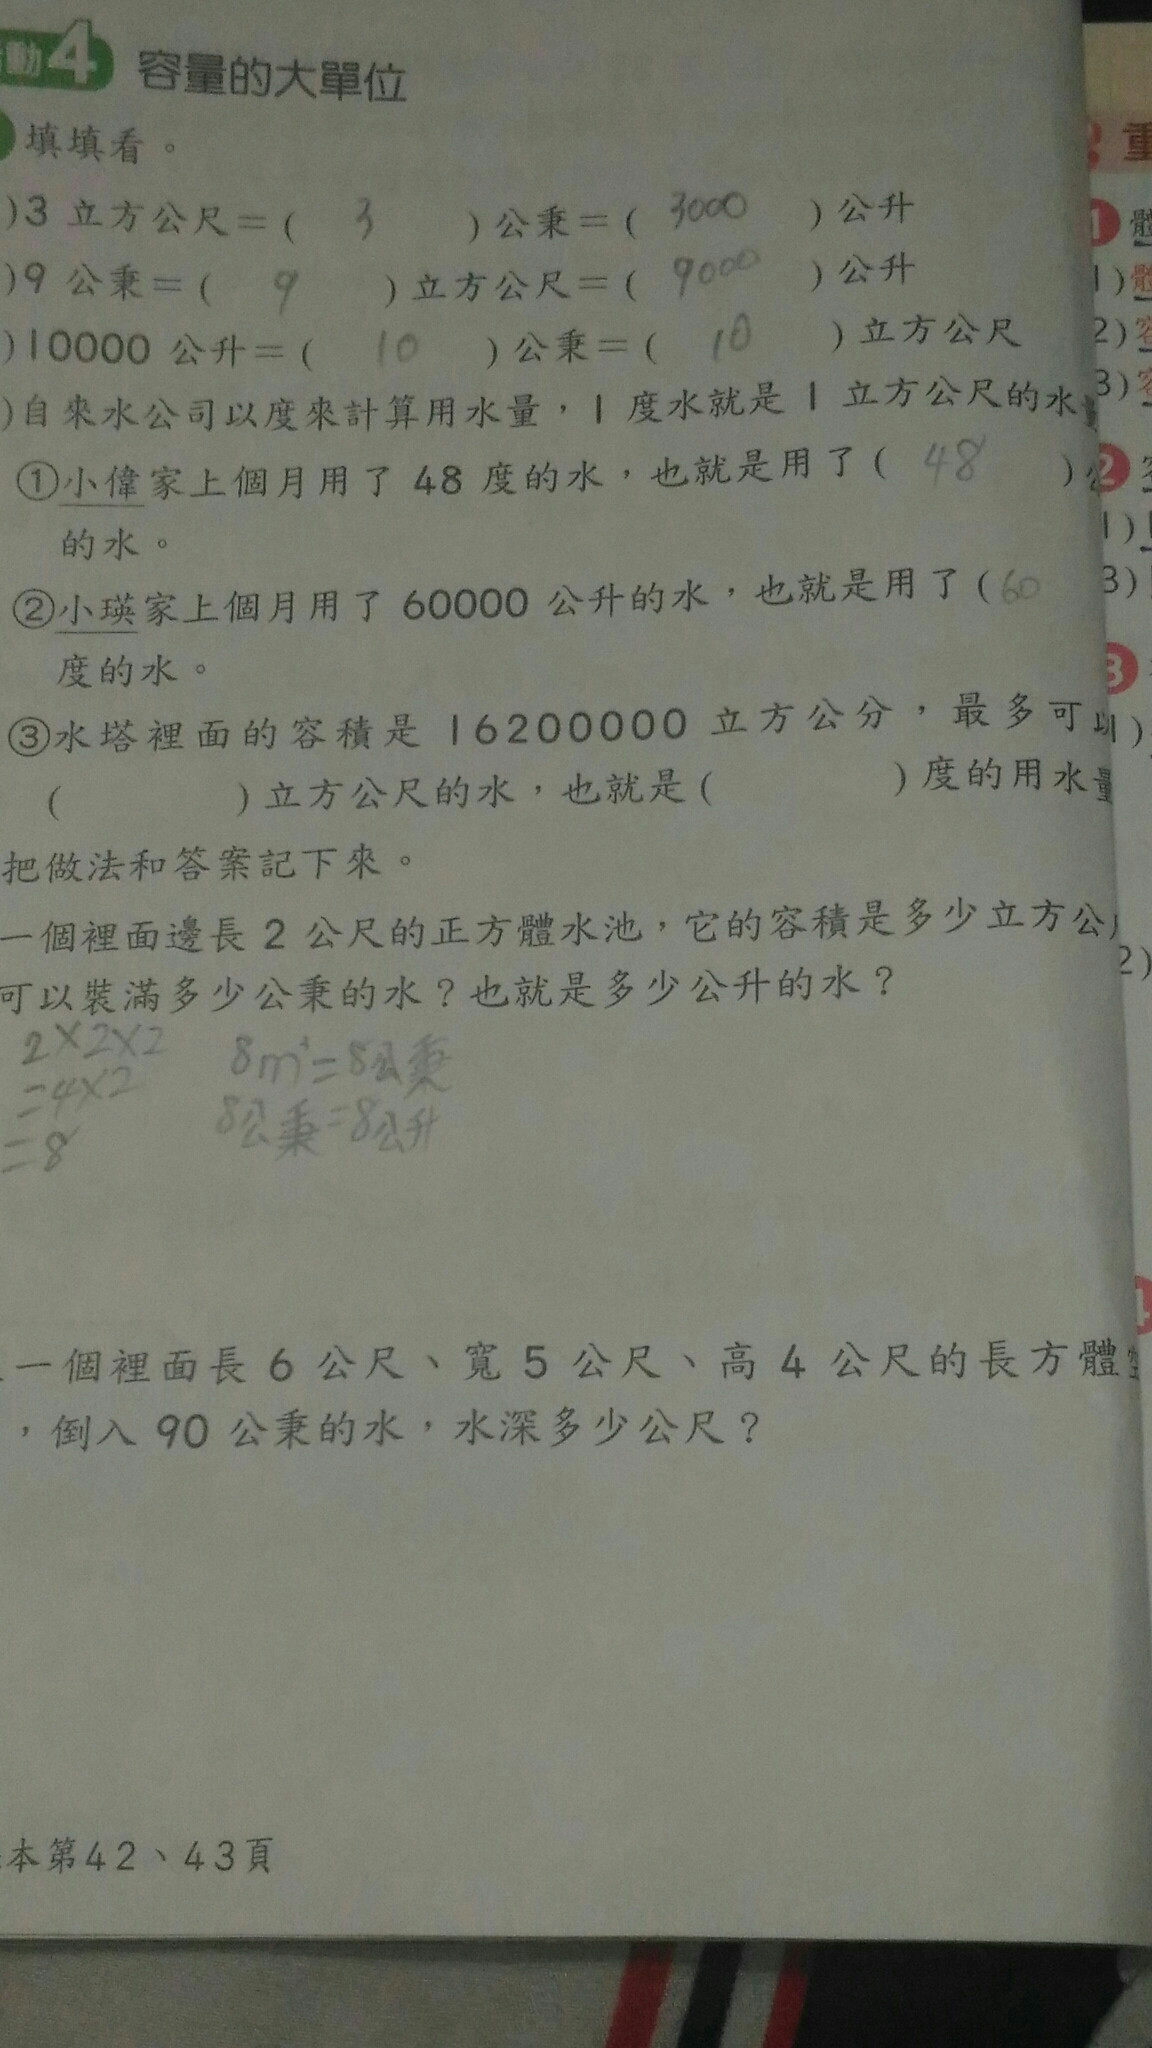 動4 容量的大單位
填填看。
)3 立方公尺＝( 3 )公秉＝( 3000 )公升
)9 公秉＝( 9 )立方公尺＝( 9000 )公升
)10000 公升＝( 10 )公秉＝( 10 )立方公尺
)自來水公司以度來計算用水量，1 度水就是 1 立方公尺的水
①小偉家上個月用了 48 度的水，也就是用了( 48 )公
的水。
②小瑛家上個月用了 60000 公升的水，也就是用了(60
度的水。
③水塔裡面的容積是 16200000 立方公分，最多可以
( )立方公尺的水，也就是( )度的用水量
把做法和答案記下來。
一個裡面邊長 2 公尺的正方體水池，它的容積是多少立方公
可以裝滿多少公秉的水？也就是多少公升的水？
2×2×2
=4×2
=8
8m³=8公秉
8公秉=8公升
一個裡面長 6 公尺、寬 5 公尺、高 4 公尺的長方體
，倒入 90 公秉的水，水深多少公尺？
本第42、43頁
重
1 體
1)體
2)容
3)容
2
1)
3)
3
1)
2)
4